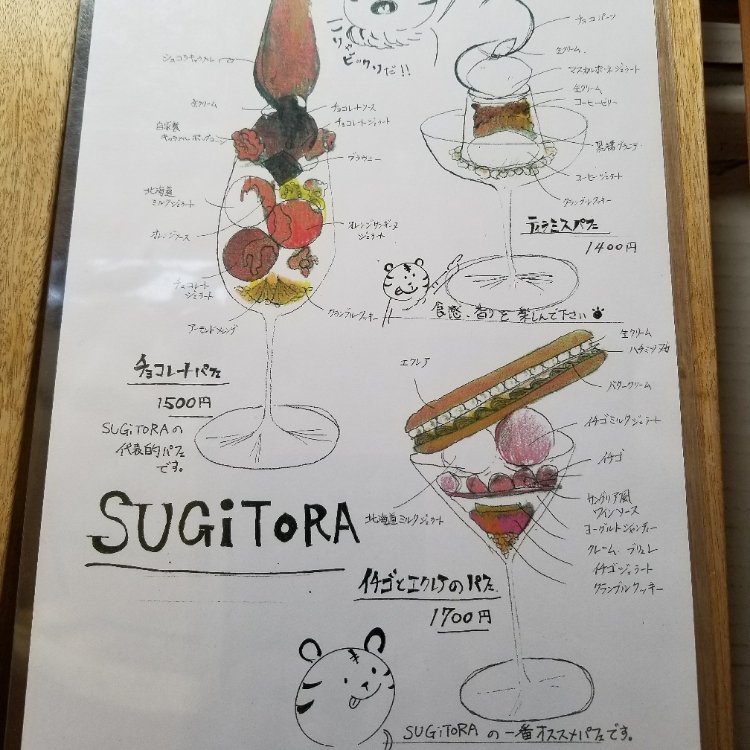 こりゃ
ビックリだ!!
生クリーム
チョコレートソース
チョコレートジェラート
自家製
ブラウニー
北海道
ミルクジェラート
オレンジソース
オレンジサンギーヌ
ジェラート
チョコレート
ジェラート
クランブルクッキー
アーモンドメレンゲ
チョコレートパフェ
1500円
SUGiTORAの
代表的パフェ
です。
チョコパーツ
生クリーム
マスカルポーネジェラート
生クリーム
コーヒーゼリー
コーヒージェラート
クランブルクッキー
ティラミスパフェ
1400円
食感、香りを楽しんで下さい
エクレア
生クリーム
バタークリーム
イチゴミルクジェラート
イチゴ
北海道ミルクジェラート
サングリア風
ワインソース
ヨーグルトシャンティー
クレームブリュレ
イチゴジェラート
クランブルクッキー
SUGiTORA
イチゴとエクレアのパフェ
1700円
SUGiTORAの一番オススメパフェです。